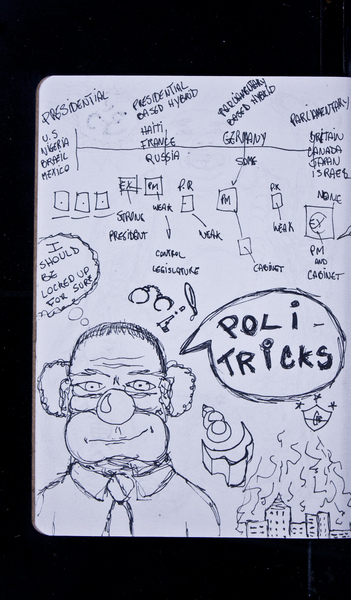 PRESIDENTIAL
PRESIDENTIAL
BASED HYBRID
PARLIAMENTARY
BASED HYBRID
PARLIAMENTARY
U.S
NIGERIA
BRAZIL
MEXICO
HAITI,
FRANCE
RUSSIA
GERMANY
SOME
BRITAIN
CANADA
JAPAN
ISRAEL
NONE
EX
PM
P.R
PM
P.R
EX
STRONG
PRESIDENT
WEAK
CONTROL
LEGISLATURE
WEAK
CABINET
WEAK
PM
AND
CABINET
I
SHOULD
BE
LOCKED UP
FOR SURE
POLI-
TRICKS